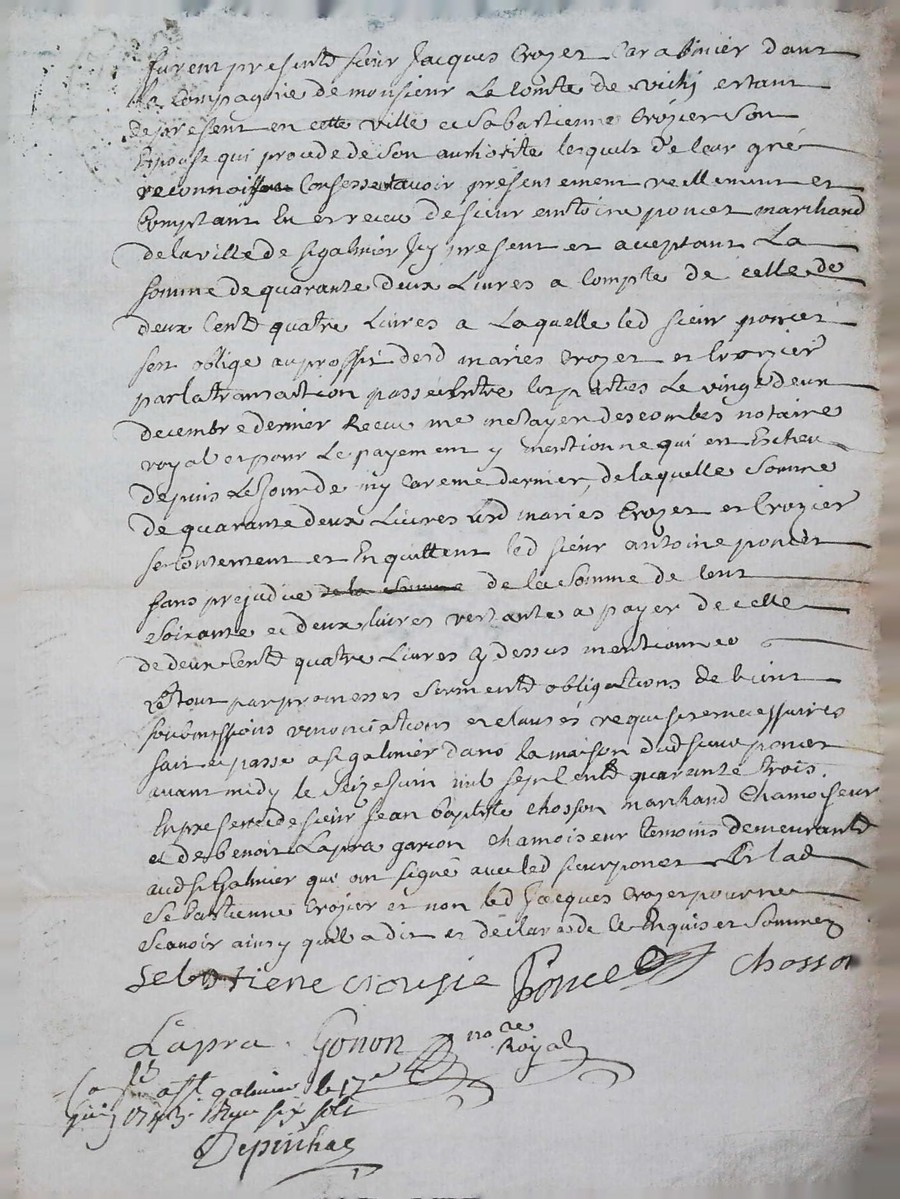 furent presentd sieur Jacques Crozet Carabinier dans
la Compagnie de monsieur Le Comte de vichi estant
de present en cette ville et Sabastienne Crozier Son
Epouse qui procede de Son authorite lesquels de leur gré
reconnoissen Confessent avoir presentement reellement et
Comptant Eu et receu de sieur antoine poncet marchand
de la ville de st galmier Icy present et aceptant La
somme de quarante deux Livres a Compte de celle de
deux Centd quatre Livres a Laquelle led sieur poncet
sest oblige au proffit desd maries Crozet et Crozier
par la transaction passée Entre les parties Le vingt deux
decembre dernier Receue me metayer descombes notaire
royal et pour Le payement y mentionne qui est Escheu
depuis Le Jour de my Careme dernier, de laquelle Somme
de quarante deux Livres lesd maries Crozet et Crozier
se Contentent et En quittent led sieur antoine poncet
sans prejudice de la Somme de la Somme de Cent
Soixante et deux Livres restante a payer de celle
de deux Centd quatre Livres cy dessus mentionnee
Et tout par promesses sermentd obligations de biens
soubmissions renonciations et clauses requises et necessaires
fait et passe a st galmier dans la maison dud sieur poncet
avant midy le Seize Juin mil sept Centd quarante trois.
En presence de sieur Jean baptiste Chosson marchand Chamoiseur
et de benoit Lapra garcon Chamoiseur temoins demeurantd
aud st Galmier qui ont signé avec led sieur poncet Et lad
Sebastienne Crozier et non led Jacques Crozet pour ne
Scavoir ainsy quil a dit et declaré de ce Enquis et Sommez
Sebastiene crousie Poncet Chosson
Lapra. Gonon no re Royal
a st galmier le 17e
juin 1743. Reçu six sols
Depinhac